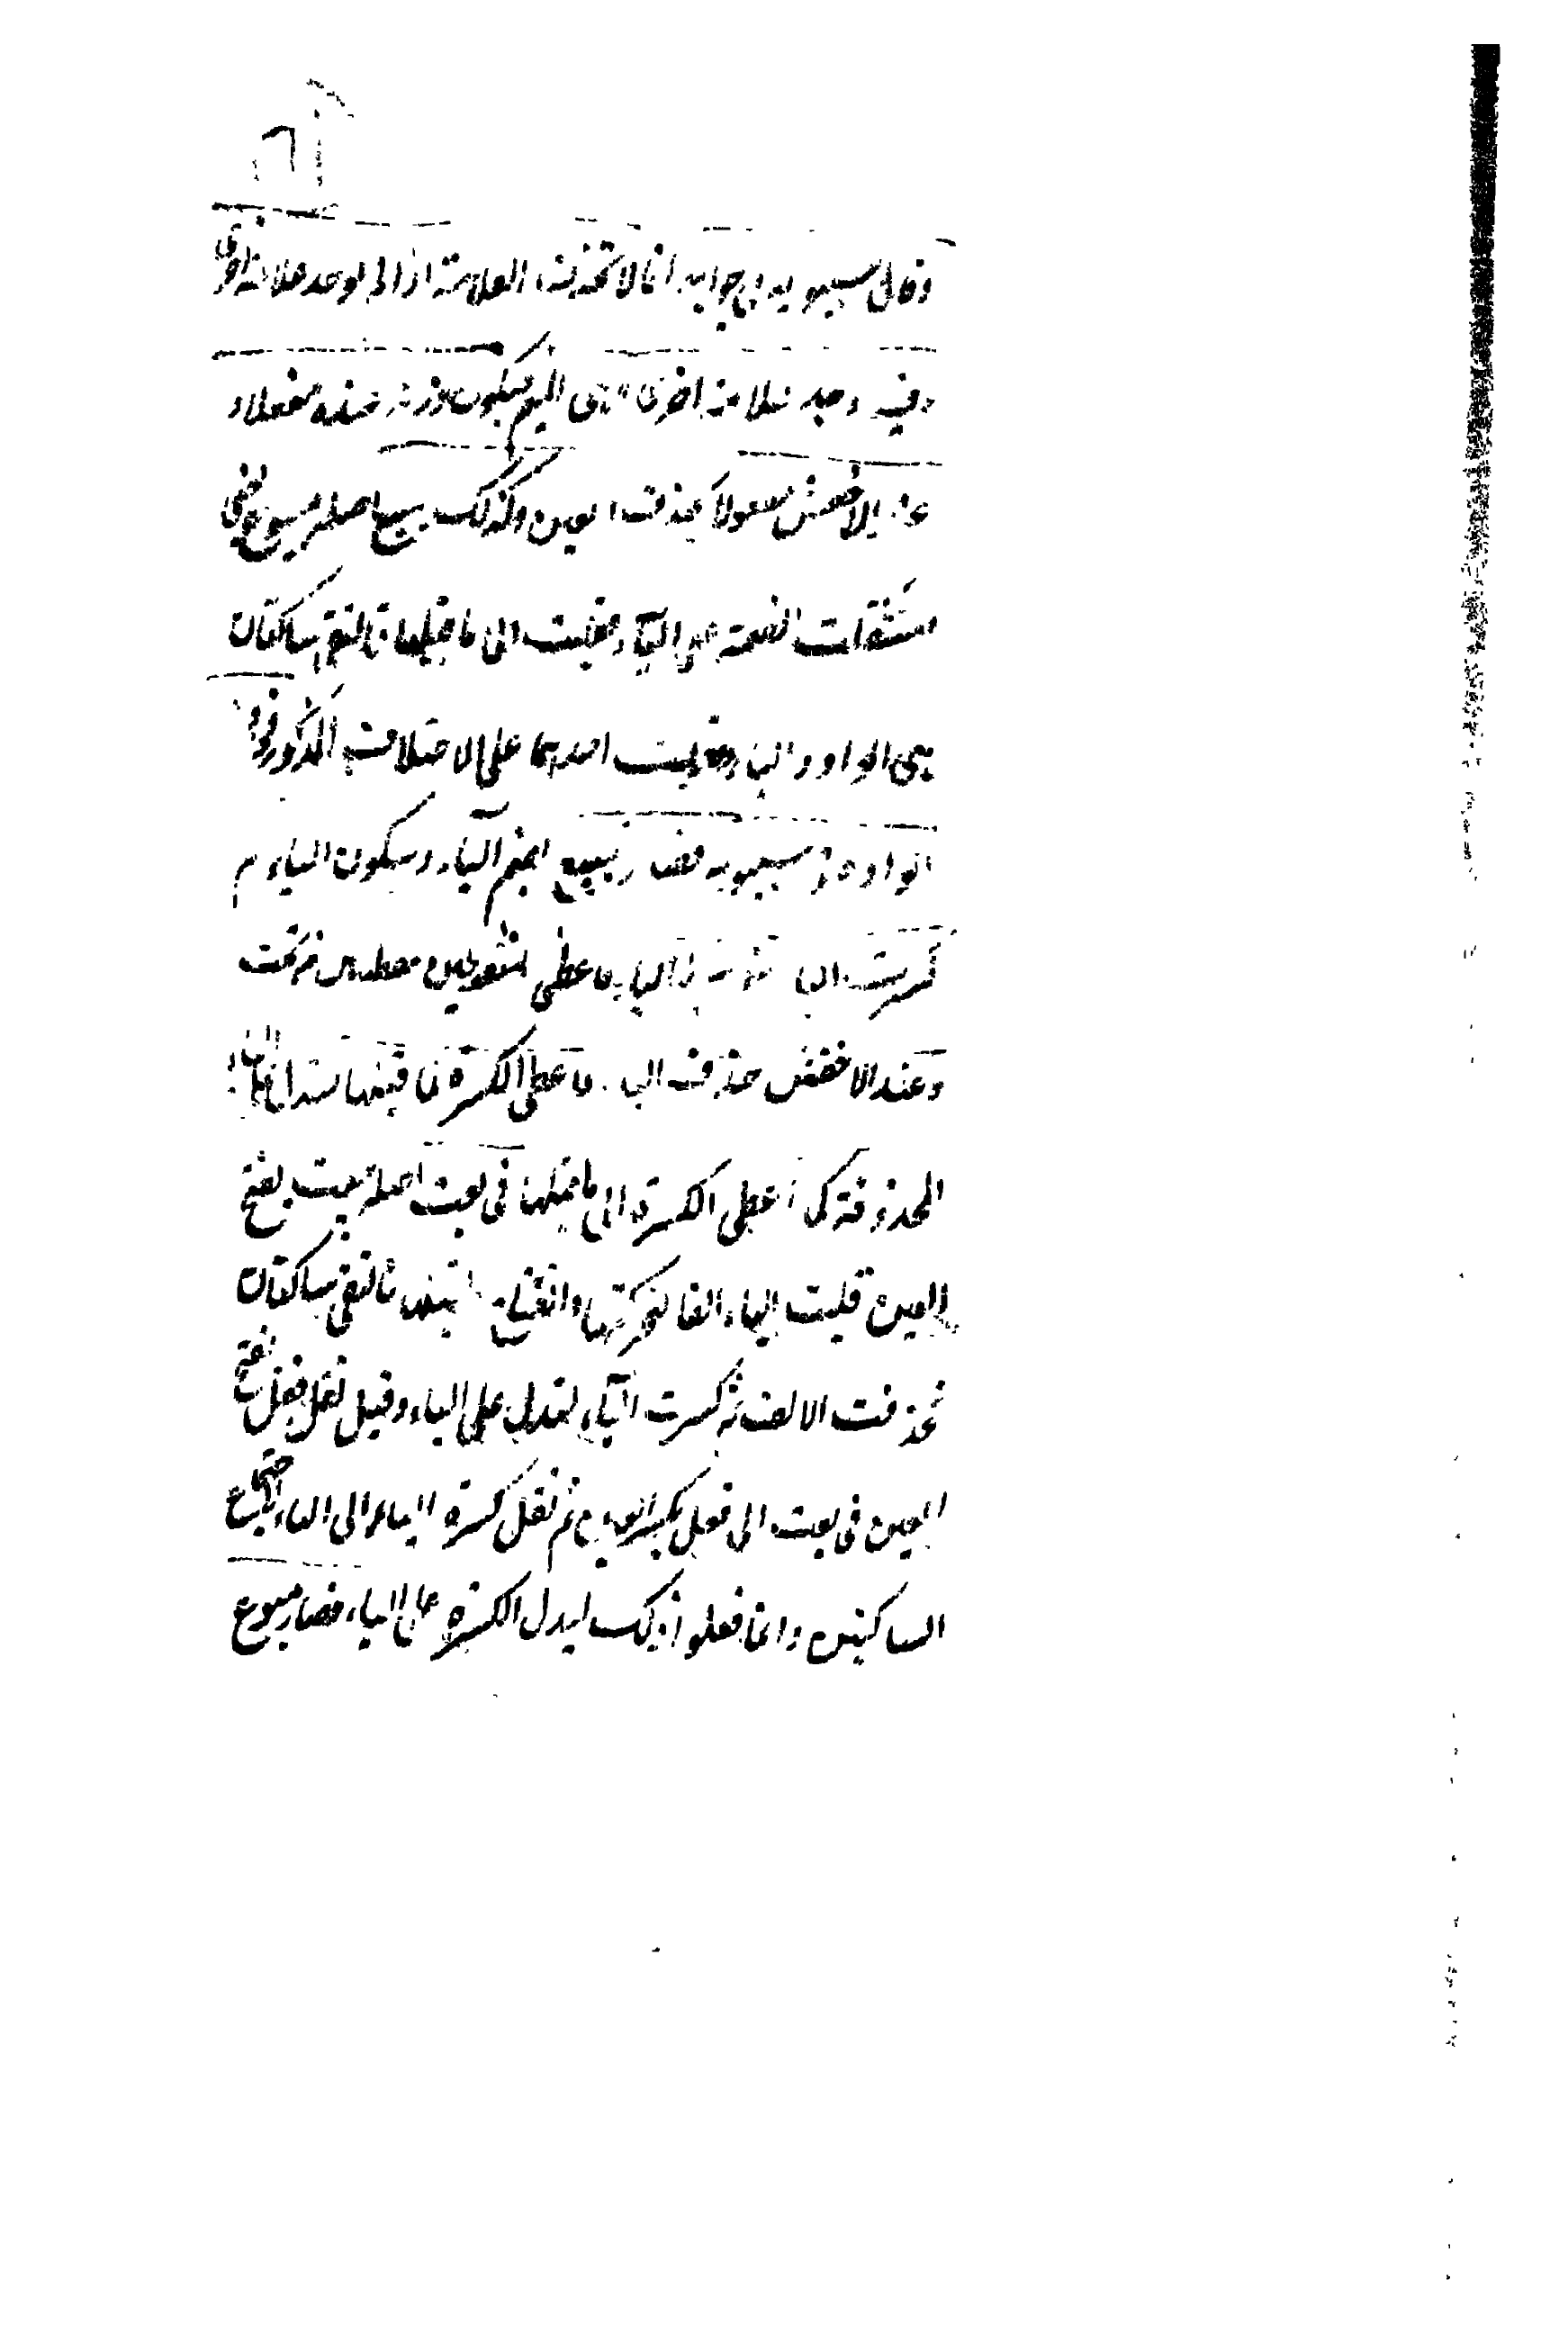 وقال سيبويه في جوابه انما لا تحذف العلامة اذا لم يوجد علامة اخرى
وفيه وجد علامة اخرى وهى الميم فيكون وزنه عنده مفعلا و
عند الاخفش مفعولا بحذف العين وكذلك مبيع اصله مبيوع
استثقلت الضمة على الياء فنقلت الى ما قبلها فالتقى ساكنان
هى الواو والياء فحذفت احديهما على الاختلاف المذكور
الواو عند سيبويه فصار مبيع بضم الباء وسكون الياء ثم
كسرت الباء الياء كما عطى
وعند الاخفش حذفت الياء فاعطى الكسرة لما قبلها
المحذوفة كما اعطى الكسرة الى ما قبلها فى بعت اصله بيعت بفتح
العين قلبت الياء الفا لتحركها وانفتاح ما قبلها فالتقى ساكنان
فحذفت الالف ثم كسرت الباء لتدل على الياء وقيل نقل فعل بفتح
العين فى بعت الى فعل بكسر العين ثم نقل كسرة الياء الى الباء
الساكنين وانما فعلوا ذلك ليدل الكسرة على الياء فصار مبيوع